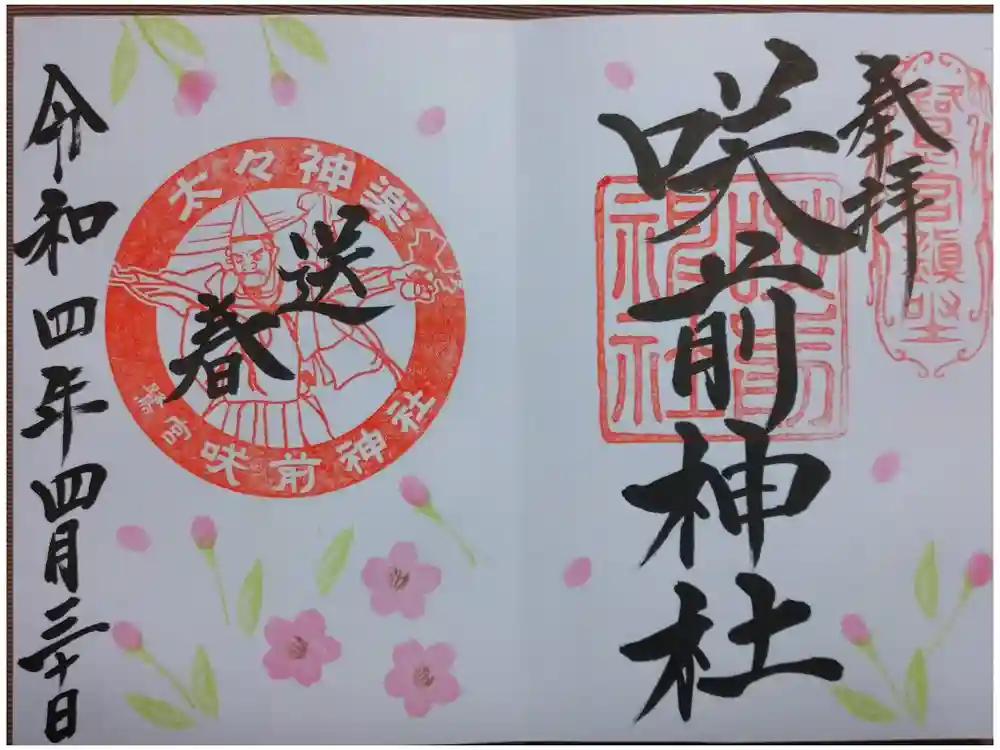 奉拝
咲前神社
鷺宮鎮坐
咲前神社
太々神楽
送
春
鷺宮咲前神社
令和四年四月三十日